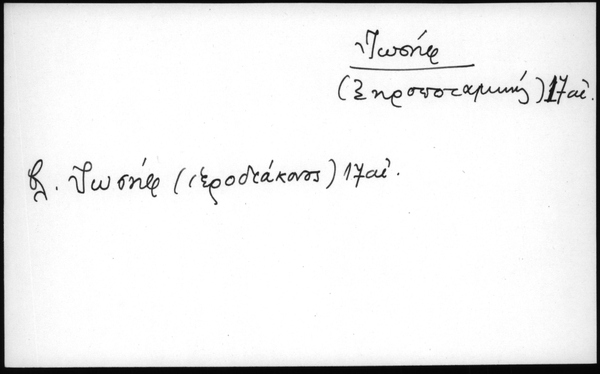 Ἰωσήφ
(Ξηροποταμηνός) 17 αἰ.
βλ. Ἰωσήφ (ἱεροδιάκονος) 17 αἰ.